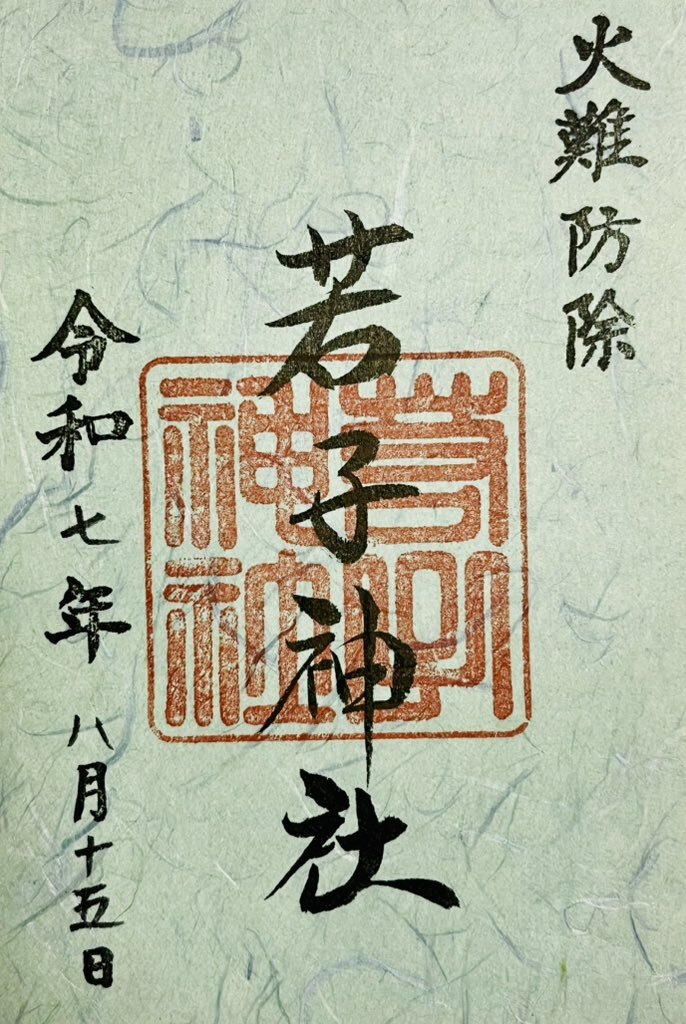 火難防除
若子神社
令和七年八月十五日